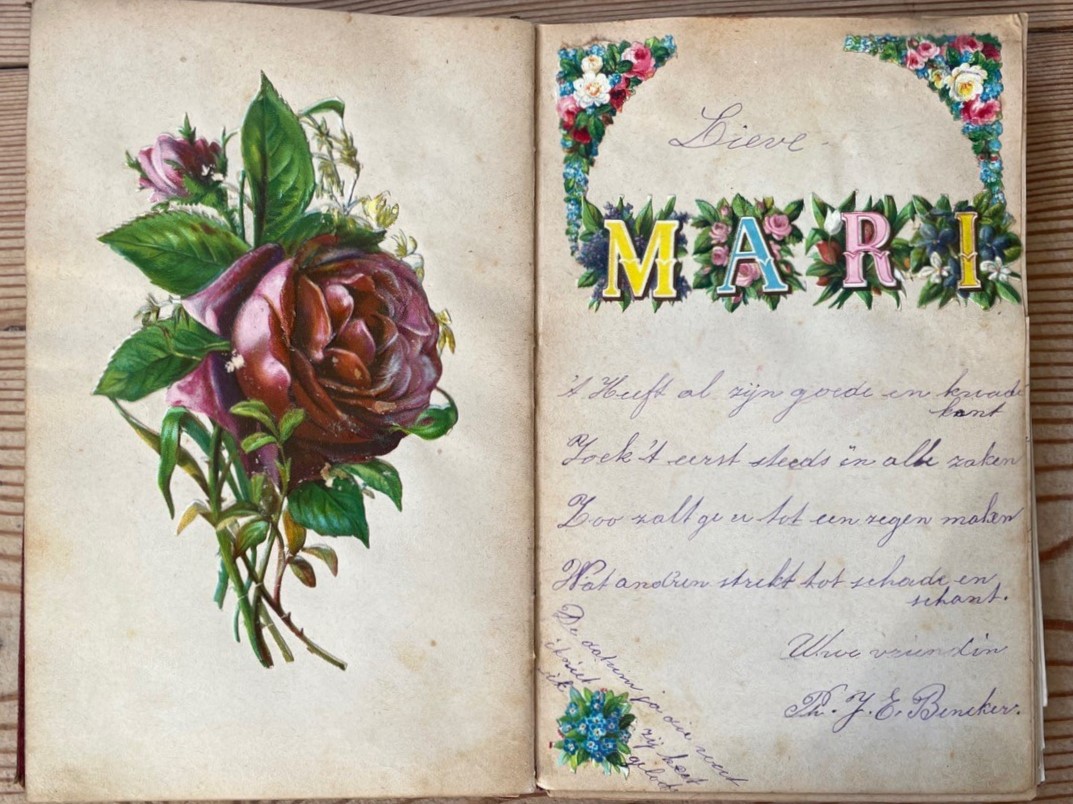 Lieve
MARI
't Heeft al zijn goede en kwade
kant
Zoek 't eerst steeds in alle zaken
Zoo zalt ge u tot een zegen maken
Wat and'ren strekt tot schade en
schant.
Uwe vriendin
Th. J. E. Beneker.
De datum ja die weet
ik niet
zij heet